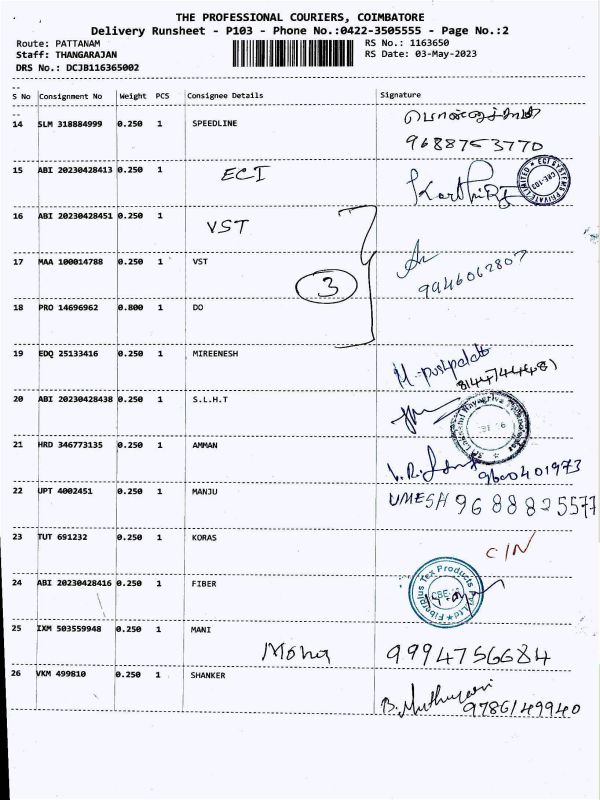 THE PROFESSIONAL COURIERS, COIMBATORE
Delivery Runsheet - P103 - Phone No.:0422-3505555 - Page No.:2
Route: PATTANAM RS No.: 1163650
Staff: THANGARAJAN RS Date: 03-May-2023
DRS No.: DCJB116365002
S No Consignment No Weight PCS Consignee Details Signature
14 SLM 318884999 0.250 1 SPEEDLINE
9688753770
15 ABI 20230428413 0.250 1 ECI
ECI SYSTEMS PRIVATE LIMITED
CBE-103
16 ABI 20230428451 0.250 1 VST
17 MAA 100014788 0.250 1 VST
9946062807
3
18 PRO 14696962 0.800 1 DO
19 EDQ 25133416 0.250 1 MIREENESH
20 ABI 20230428438 0.250 1 S.L.H.T
21 HRD 346773135 0.250 1 AMMAN
9600401973
22 UPT 4002451 0.250 1 MANJU
UMESH 9688825577
23 TUT 691232 0.250 1 KORAS
C/N
24 ABI 20230428416 0.250 1 FIBER
Fiberplus Tex Products Pvt Ltd
CBE
25 IXM 503559948 0.250 1 MANI
9994756684
26 VKM 499810 0.250 1 SHANKER
9786149940